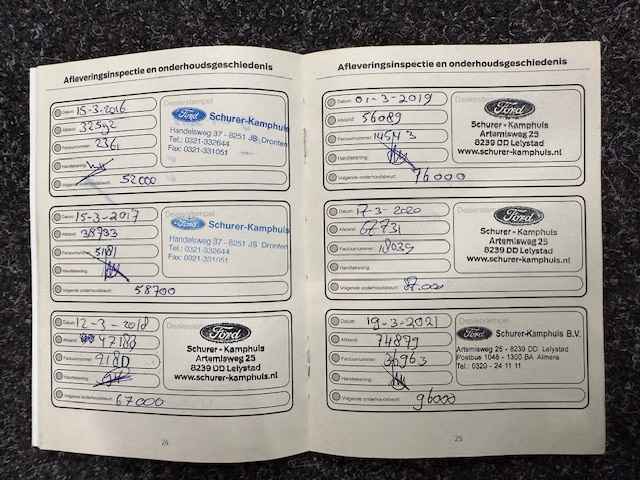 Afleveringsinspectie en onderhoudsgeschiedenis
Datum: 15-3-2016
Afstand: 32592
Factuurnummer: 2361
Handtekening:
Volgende onderhoudsbeurt: 52000
Dealerstempel
Ford Schurer-Kamphuis
Handelsweg 37 - 8251 JB Dronten
Tel.: 0321-332644
Fax: 0321-331051
Datum: 15-3-2017
Afstand: 38733
Factuurnummer: 5181
Handtekening:
Volgende onderhoudsbeurt: 58700
Dealerstempel
Ford Schurer-Kamphuis
Handelsweg 37 - 8251 JB Dronten
Tel.: 0321-332644
Fax: 0321-331051
Datum: 12-3-2018
Afstand: 47180
Factuurnummer: 9180
Handtekening:
Volgende onderhoudsbeurt: 67000
Ford
Schurer - Kamphuis
Artemisweg 25
8239 DD Lelystad
www.schurer-kamphuis.nl
24
Afleveringsinspectie en onderhoudsgeschiedenis
Datum: 01-3-2019
Afstand: 56089
Factuurnummer:
Handtekening:
Volgende onderhoudsbeurt: 76000
Dealerstempel
Ford
Schurer - Kamphuis
Artemisweg 25
8239 DD Lelystad
www.schurer-kamphuis.nl
Datum: 17-3-2020
Afstand: 67731
Factuurnummer: 18039
Handtekening:
Volgende onderhoudsbeurt:
Ford
Schurer - Kamphuis
Artemisweg 25
8239 DD Lelystad
www.schurer-kamphuis.nl
Datum: 19-3-2021
Afstand: 74899
Factuurnummer: 36963
Handtekening:
Volgende onderhoudsbeurt: 96000
Ford Schurer-Kamphuis B.V.
Artemisweg 25 - 8239 DD Lelystad
Postbus 1048 - 1300 BA Almere
Tel.: 0320 - 24 11 11
25